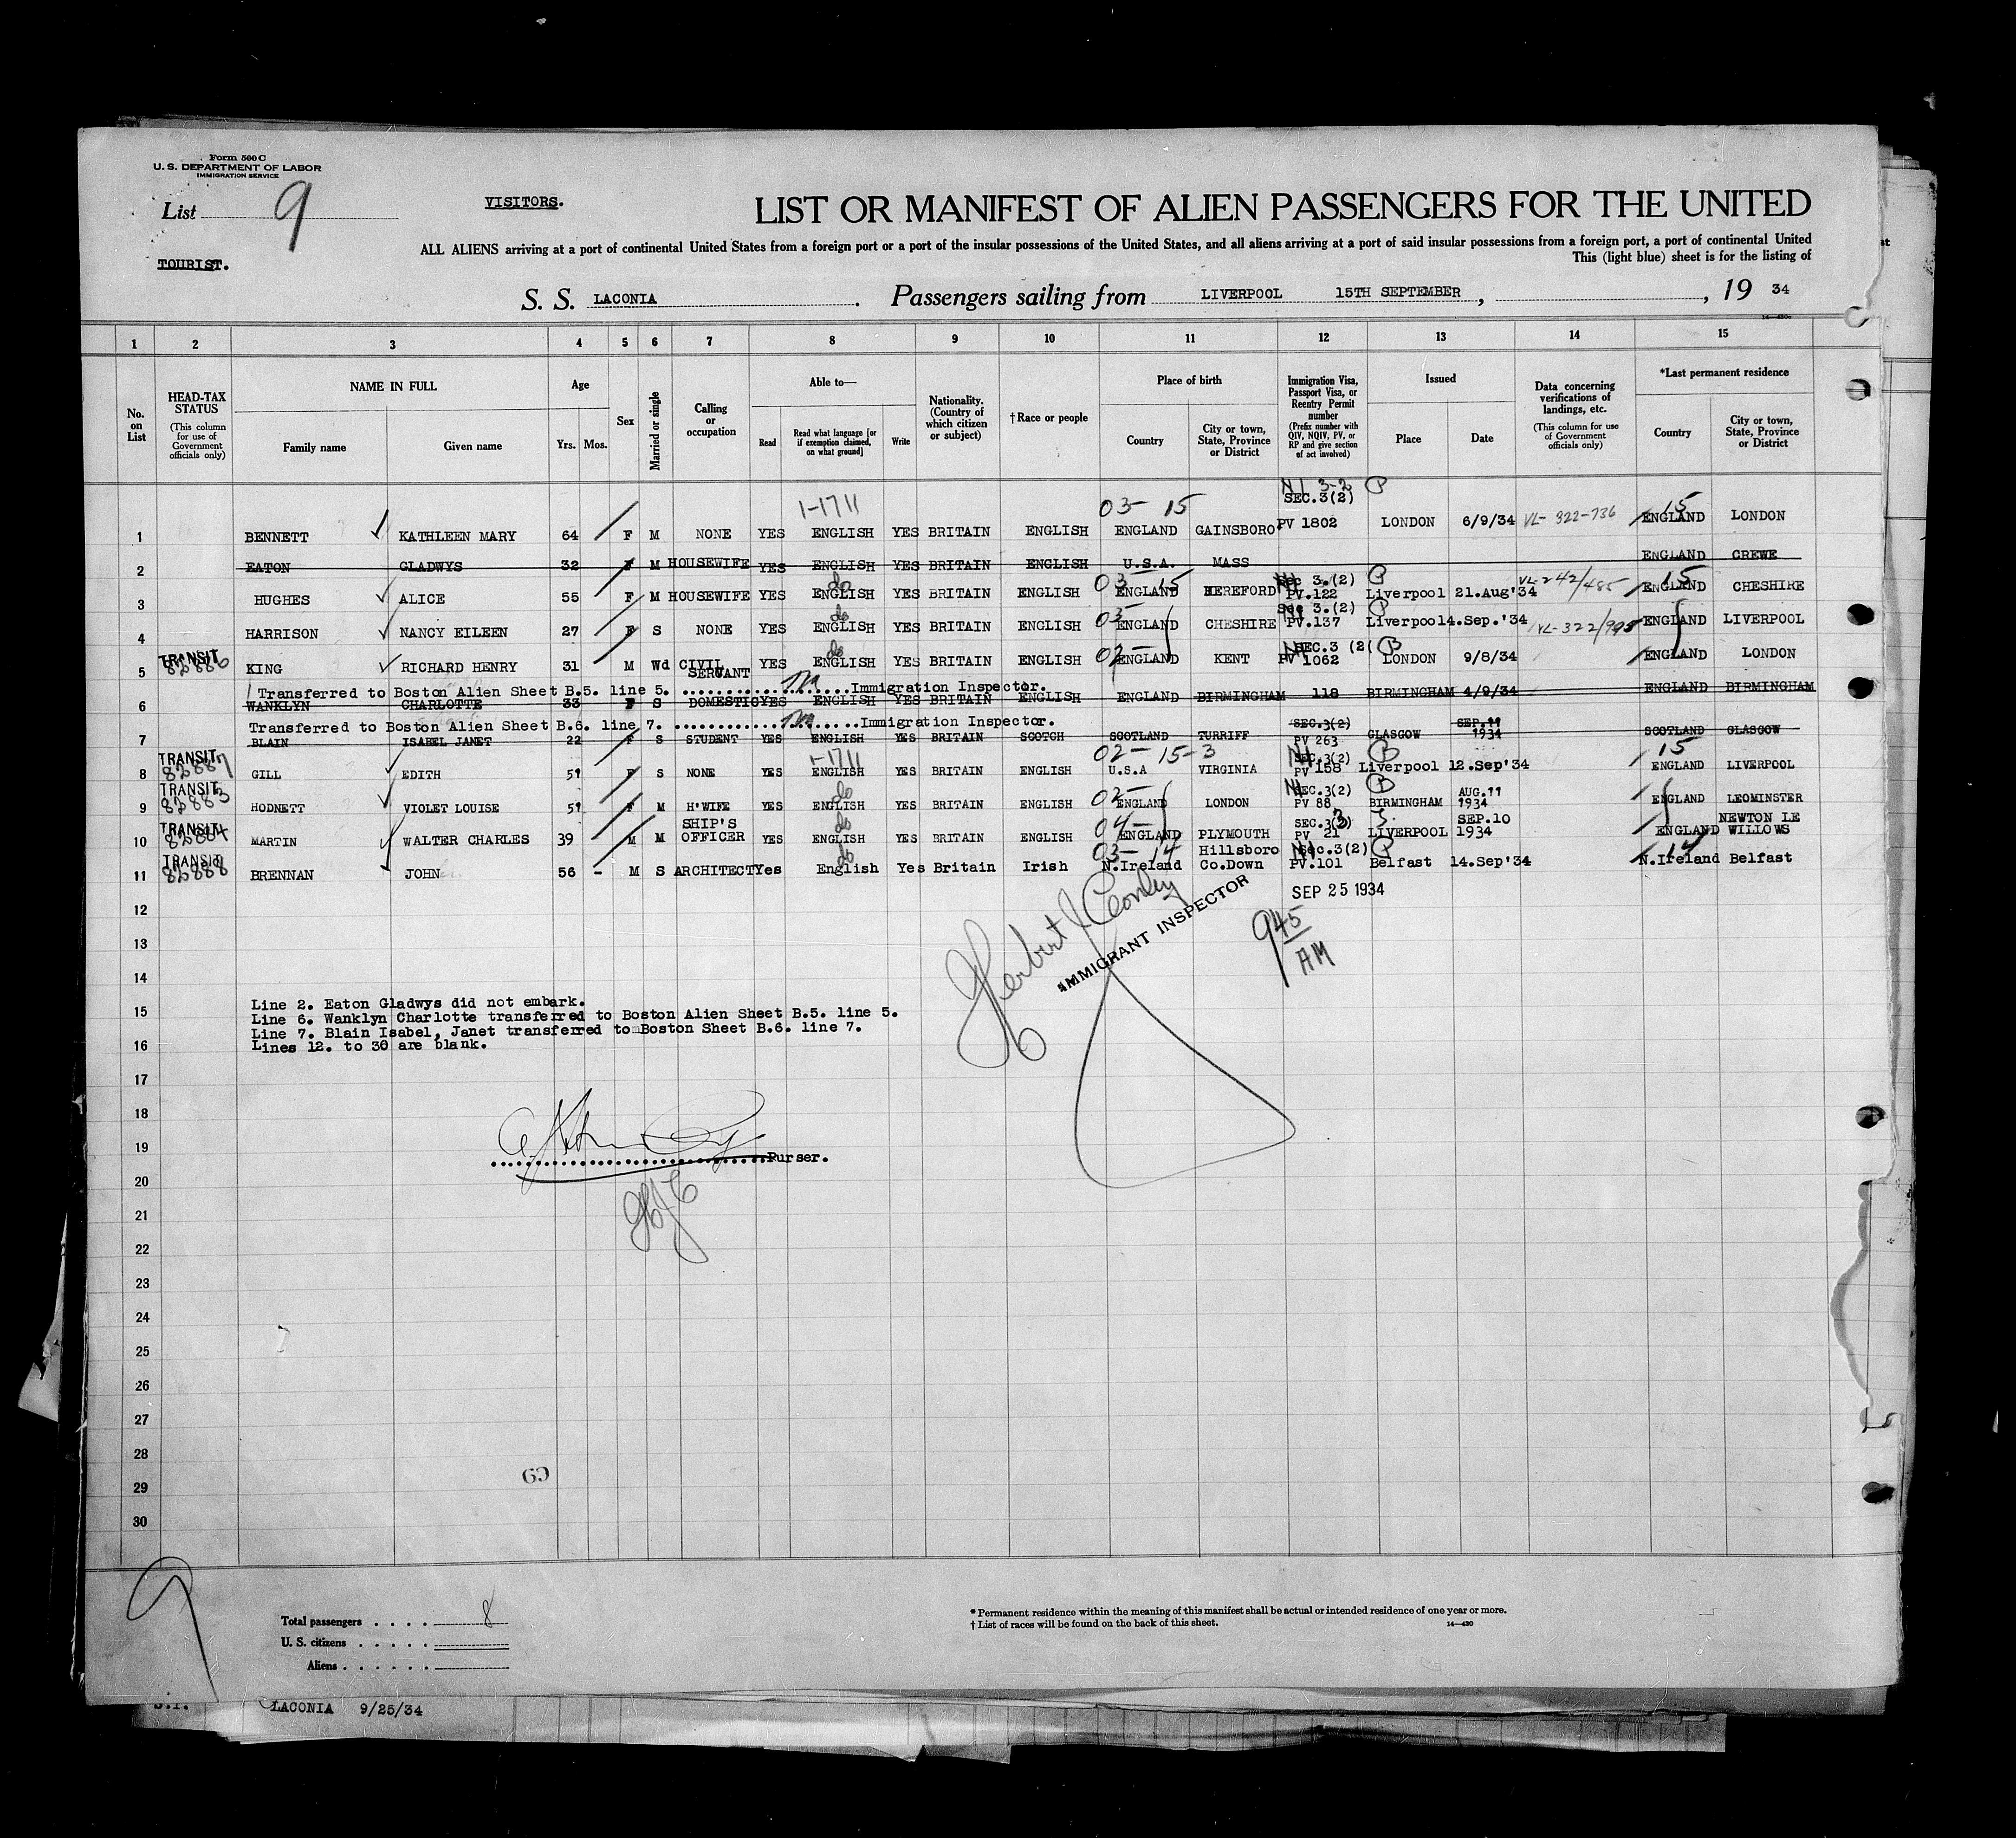 Form 500 C
U. S. DEPARTMENT OF LABOR
IMMIGRATION SERVICE
List 9
VISITORS.
LIST OR MANIFEST OF ALIEN PASSENGERS FOR THE UNITED
TOURIST.
ALL ALIENS arriving at a port of continental United States from a foreign port or a port of the insular possessions of the United States, and all aliens arriving at a port of said insular possessions from a foreign port, a port of continental United
This (light blue) sheet is for the listing of
S. S. LACONIA. Passengers sailing from LIVERPOOL 15TH SEPTEMBER, , 19 34
14—430
1 2 3 4 5 6 7 8 9 10 11 12 13 14 15
No. on List
HEAD-TAX STATUS (This column for use of Government officials only)
NAME IN FULL
Family name Given name
Age
Yrs. Mos.
Sex
Married or single
Calling or occupation
Able to—
Read Read what language [or if exemption claimed, on what ground] Write
Nationality. (Country of which citizen or subject)
†Race or people
Place of birth
Country City or town, State, Province or District
Immigration Visa, Passport Visa, or Reentry Permit number (Prefix number with QIV, NQIV, PV, or RP and give section of act involved)
Issued
Place Date
Data concerning verifications of landings, etc. (This column for use of Government officials only)
*Last permanent residence
Country City or town, State, Province or District
1-1711 03- 15 3-2 P SEC.3(2) 15
1 BENNETT KATHLEEN MARY 64 F M NONE YES ENGLISH YES BRITAIN ENGLISH ENGLAND GAINSBORO PV 1802 LONDON 6/9/34 VL-322-736 ENGLAND LONDON
2 EATON GLADWYS 32 F M HOUSEWIFE YES ENGLISH YES BRITAIN ENGLISH U.S.A. MASS ENGLAND CREWE
do 03- 15 Sec 3.(2) P VL-242/485 15
3 HUGHES ALICE 55 F M HOUSEWIFE YES ENGLISH YES BRITAIN ENGLISH ENGLAND HEREFORD PV.122 Liverpool 21.Aug'34 ENGLAND CHESHIRE
do 03- Sec 3.(2) P
4 HARRISON NANCY EILEEN 27 F S NONE YES ENGLISH YES BRITAIN ENGLISH ENGLAND CHESHIRE PV.137 Liverpool 4.Sep.'34 VL-322/995 ENGLAND LIVERPOOL
TRANSIT 82886 do 02- SEC.3 (2( P
5 KING RICHARD HENRY 31 M Wd CIVIL SERVANT YES ENGLISH YES BRITAIN ENGLISH ENGLAND KENT PV 1062 LONDON 9/8/34 ENGLAND LONDON
Transferred to Boston Alien Sheet B.5. line 5. ....................Immigration Inspector.
6 WANKLYN CHARLOTTE 33 F S DOMESTIC YES ENGLISH YES BRITAIN ENGLISH ENGLAND BIRMINGHAM 118 BIRMINGHAM 4/9/34 ENGLAND BIRMINGHAM
Transferred to Boston Alien Sheet B.6. line 7. ......................Immigration Inspector.
7 BLAIN ISABEL JANET 22 F S STUDENT YES ENGLISH YES BRITAIN SCOTCH SCOTLAND TURRIFF SEC.3(2) PV 263 GLASGOW SEP.11 1934 SCOTLAND GLASGOW
TRANSIT 82887 1-1711 02- 15-3 SEC.3(2) P 15
8 GILL EDITH 51 F S NONE YES ENGLISH YES BRITAIN ENGLISH U.S.A VIRGINIA PV 158 Liverpool 12.Sep'34 ENGLAND LIVERPOOL
TRANSIT 82883 do 02- SEC.3(2) P AUG.11
9 HODNETT VIOLET LOUISE 51 F M H'WIFE YES ENGLISH YES BRITAIN ENGLISH ENGLAND LONDON PV 88 BIRMINGHAM 1934 ENGLAND LEOMINSTER
TRANSIT 82884 SHIP'S do 04- SEC.3(3) SEP.10 NEWTON LE
10 MARTIN WALTER CHARLES 39 M M OFFICER YES ENGLISH YES BRITAIN ENGLISH ENGLAND PLYMOUTH PV 21 LIVERPOOL 1934 ENGLAND WILLOWS
TRANSIT 82888 do 03- 14 Hillsboro Sec.3(2) P 14
11 BRENNAN JOHN 56 - M S ARCHITECT Yes English Yes Britain Irish N.Ireland Co.Down PV.101 Belfast 14.Sep'34 N.Ireland Belfast
12
SEP 25 1934
Herbert J Conley
IMMIGRANT INSPECTOR
9 45 AM
13
14
Line 2. Eaton Gladwys did not embark.
15 Line 6. Wanklyn Charlotte transferred to Boston Alien Sheet B.5. line 5.
Line 7. Blain Isabel, Janet transferred to Boston Sheet B.6. line 7.
16 Lines 12. to 30 are blank.
17
18
19 ..............................Purser.
20
21 HJC
22
23
24
25
26
27
28
29 69
30
9
Total passengers . . . . 8
U. S. citizens . . . . .
Aliens . . . . . .
* Permanent residence within the meaning of this manifest shall be actual or intended residence of one year or more.
† List of races will be found on the back of this sheet.
14—430
S.I. LACONIA 9/25/34